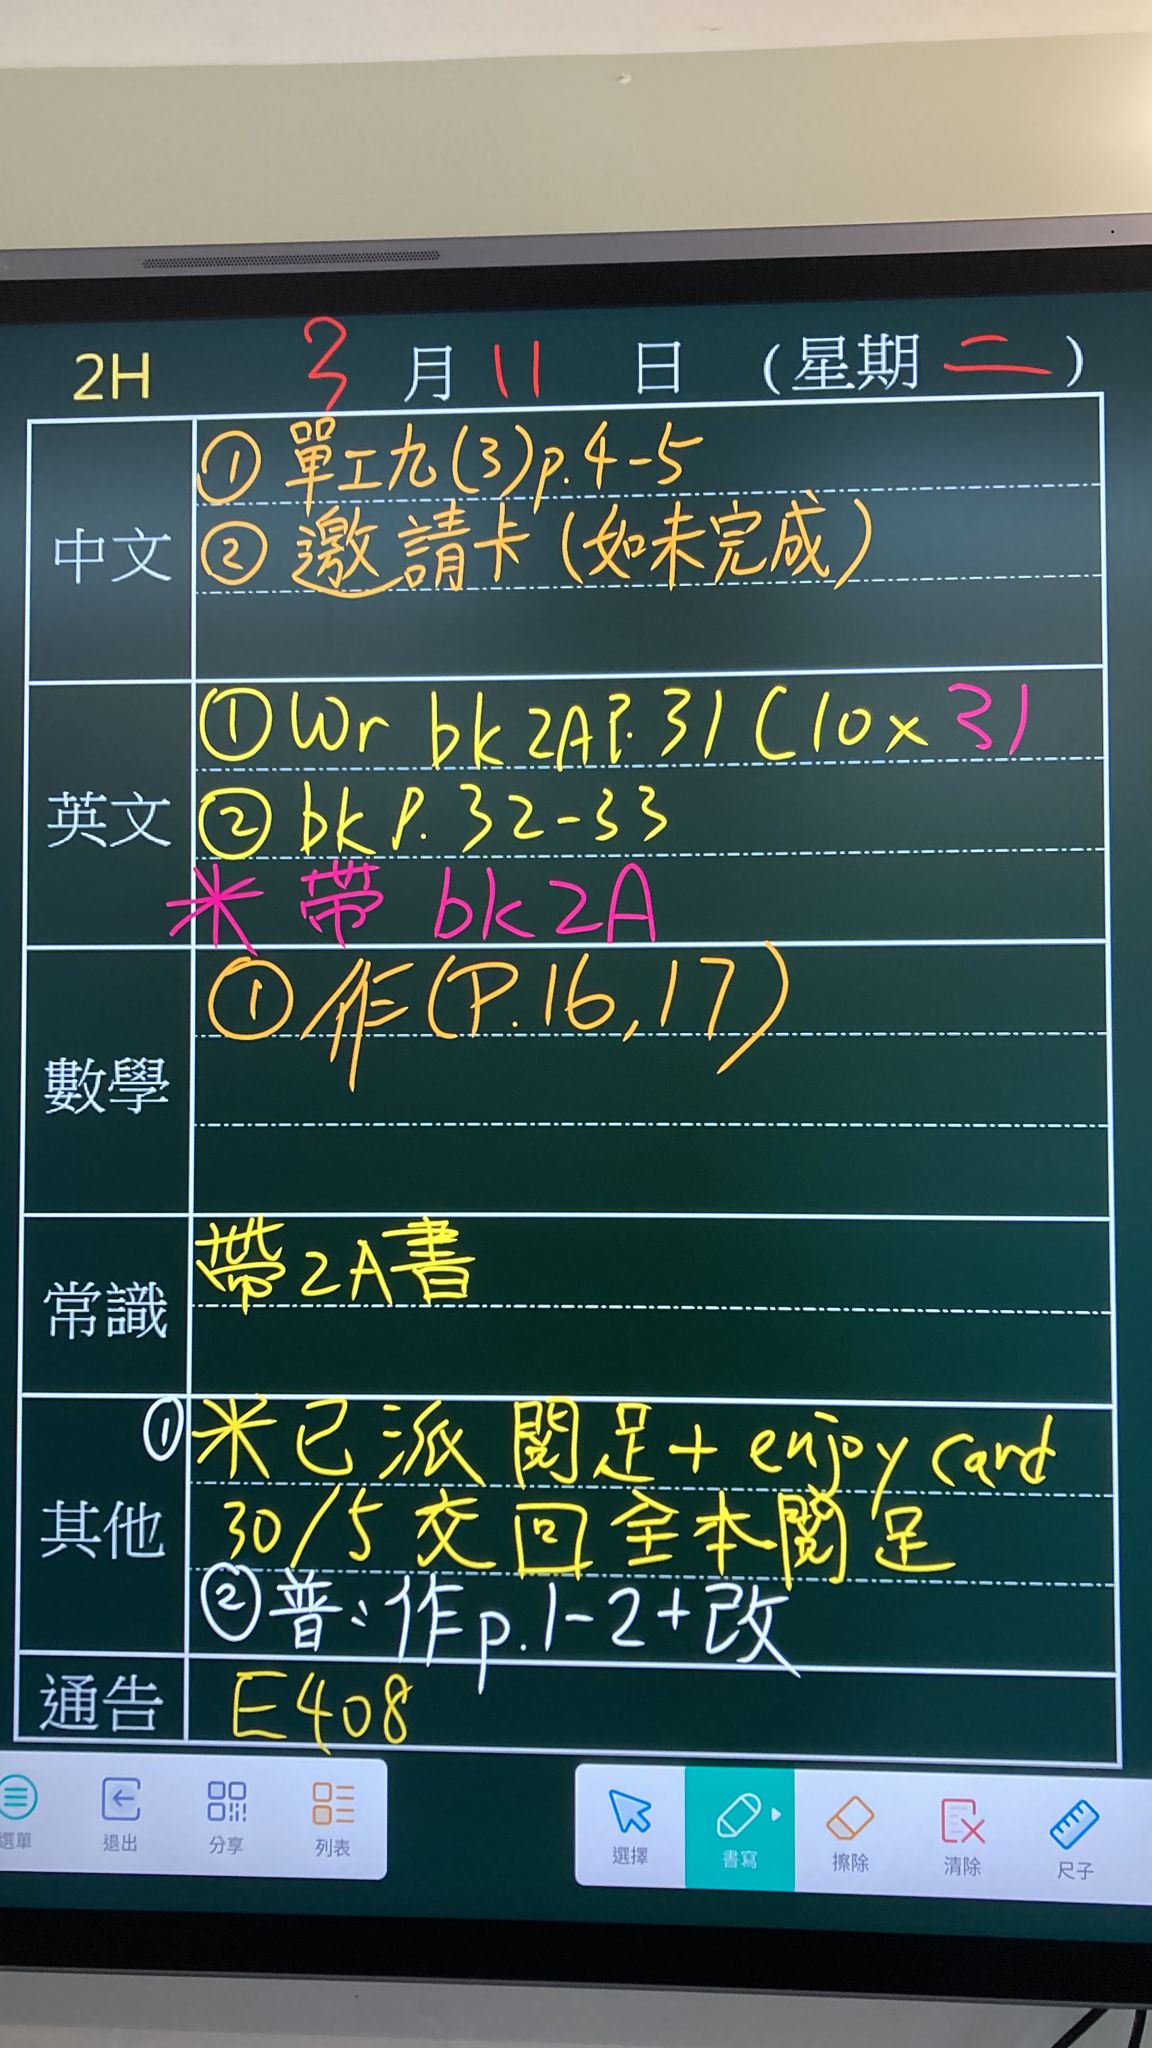 2H 3月11日(星期二)
中文
① 單工九(3)p.4-5
② 邀請卡(如未完成)
英文
① Wr bk 2A P.31 (10x31
② bk P.32-33
米 帶 bk 2A
數學
① 作(P.16,17)
常識
帶2A書
其他
① 米已派閱足+enjoy card
30/5 交回全本閱足
② 普:作p.1-2+改
通告
E408
選單 退出 分享 列表 選擇 書寫 擦除 清除 尺子